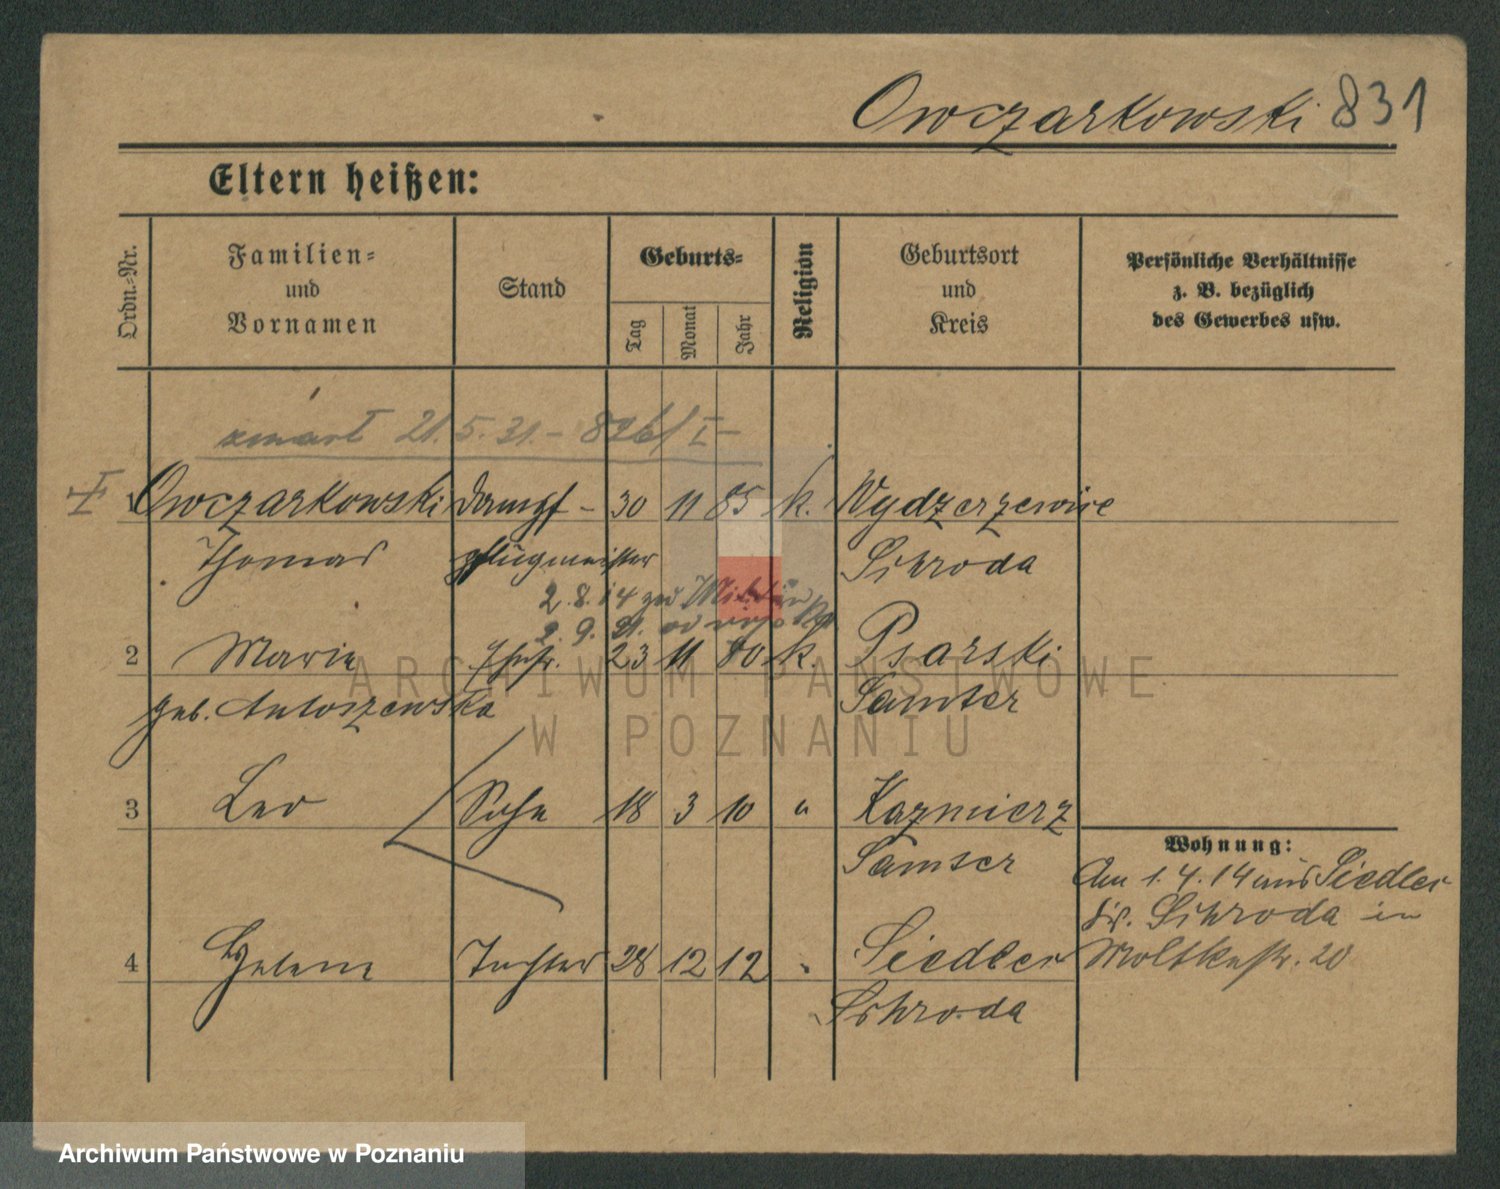 Owczarkowski 831
Eltern heißen:
Ordn.-Nr.
Familien-
und
Vornamen
Stand
Geburts-
Tag
Monat
Jahr
Religion
Geburtsort
und
Kreis
Persönliche Verhältnisse
z. B. bezüglich
des Gewerbes usw.
zmarł 21.5.31. – 826/I –
1 Owczarkowski Dampf- 30 11 85 k. Wydzerzewice
Thomas pflügmeister Schroda
2.8.14 zum Militär
2.9.21.
2 Marie Ehefr. 23 11 80 k. Psarski
geb. Antoszewska Samter
3 Leo Sohn 18 3 10 " Kazmierz
Samter
4 Helene Tochter 28 12 12 " Siedlec
Schroda
Wohnung:
Am 1.4.14 aus Siedlec
Kr. Schroda in
Moltkestr. 20
ARCHIWUM PAŃSTWOWE
W POZNANIU
Archiwum Państwowe w Poznaniu